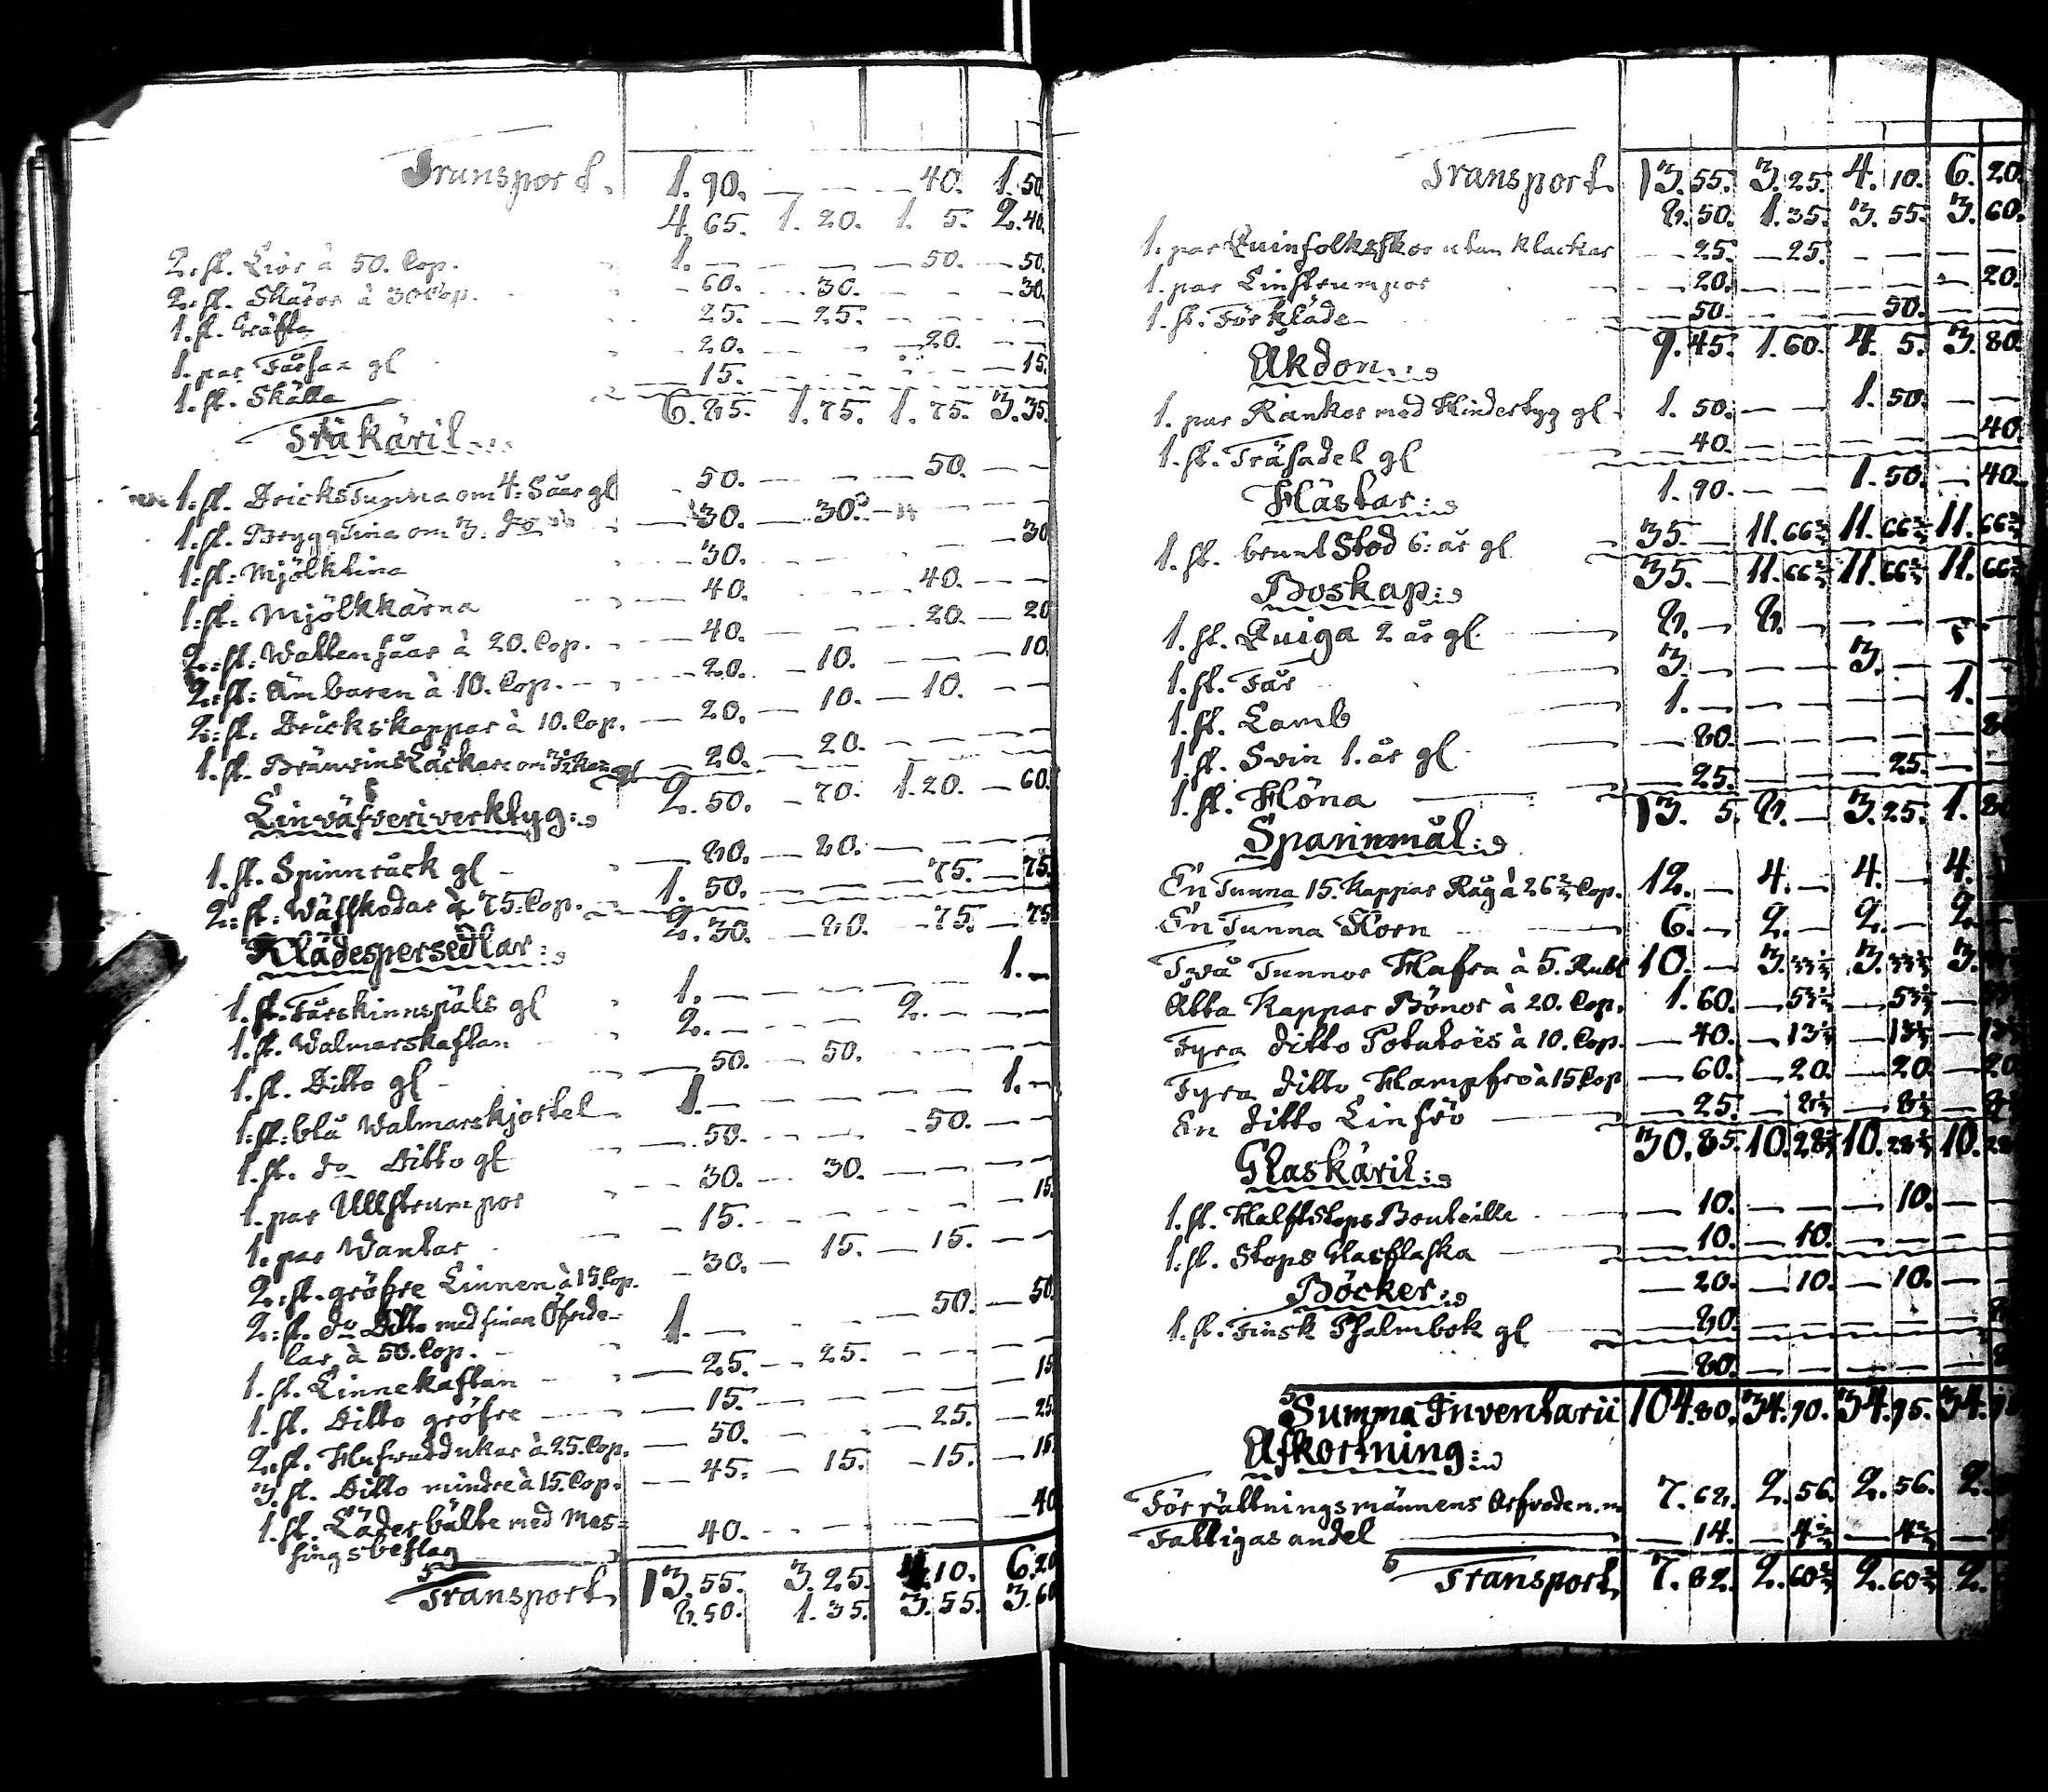 Transport, 1. 90. — — — 40. 1. 50.
4. 65. 1. 20. 1. 5. 2. 40.
2. st. Liar à 50. Cop. 1. — — — 50. — 50.
2. st. Skäror à 30 Cop. — 60. — 30. — — — 30.
1. st. Gräfta — 25. — 25. — — — —
1. par Fårsax gl — 20. — — — 20. — —
1. st. Skälla — 15. — — — — — 15.
6. 85. 1. 75. 1. 75. 3. 35.
Träkäril
1. st. Dricks Tunna om 4: Såar gl — 50. — — — 50. — —
1. st. Brygg Tina om 3. do — 30. — 30. — — — —
1. st. Mjölktina — 30. — — — — — 30
1. st. Mjölkkärna — 40. — — — 40. — —
2. st. Wattensåar à 20. Cop. — 40. — — — 20. — 20
2. st. Ämbaren à 10. Cop. — 20. — 10. — — — 10.
2. st. Drickskappar à 10. Cop. — 20. — 10. — 10. — —
1. st. Bränvins Läckare om gl — 20. — 20. — — — —
2. 50. — 70. 1. 20. — 60.
Linväfveriverktyg:
1. st. Spinnråck gl — 80. — 80. — — — —
2. st. Wäfskedar à 75. Cop. 1. 50. — — — 75. — 75.
2. 30. — 80. — 75. — 75.
Klädespersedlar:
1. st. Fårskinnspäls gl 1. — — — — — 1. —
1. st. Walmarskaftan 2. — — — 2. — — —
1. st. Ditto gl — 50. — 50. — — — —
1. st. blå Walmarskjortel 1. — — — — — 1. —
1. st. do Ditto gl — 50. — — — 50. — —
1. par Ullstrumpor — 30. — 30. — — — —
1. par Wantar — 15. — — — — — 15.
2. st. gröfre Linnen à 15. Cop. — 30. — 15. — 15. — —
2. st. do Ditto med finare Öfvede-
lar à 50. Cop. 1. — — — — 50. — 50.
1. st. Linnekaftan — 25. — 25. — — — —
1. st. Ditto gröfre — 15. — — — — — 15
2. st. Hufvuddukar à 25. Cop. — 50. — — — 25. — 25.
3. st. Ditto mindre à 15. Cop. — 45. — 15. — 15. — 15.
1. st. Läderbälte med Mes=
singsbeslag — 40. — — — — — 40
Transport, 13. 55. 3. 25. 4. 10. 6. 20
8. 50. 1. 35. 3. 55. 3. 60
Transport 13. 55. 3. 25. 4. 10. 6. 20.
8. 50. 1. 35. 3. 55. 3. 60.
1. par Quinfolksskor utan klackar — 25. — 25. — — — —
1. par Linstrumpor — 20. — — — — — 20.
1. st. Förkläde — 50. — — — 50. — —
9. 45. 1. 60. 4. 5. 3. 80.
Åkdon
1. par Rankor med Hindertyg gl 1. 50. — — 1. 50. — —
1. st. Träsadel gl — 40. — — — — — 40.
1. 90. — — 1. 50. — 40.
Hästar:
1. st. brunt Stod 6: år gl 35. — 11. 66 2/3 11. 66 2/3 11. 66 2/3
35. — 11. 66 2/3 11. 66 2/3 11. 66 2/3
Boskap:
1. st. Quiga 2 år gl. 8. — 8. — — — — —
1. st. Får 3. — — — 3. — — —
1. st. Lamb 1. — — — — — 1. —
1. st. Svin 1. år gl — 80. — — — — — 80
1. st. Höna — 25. — — — 25. — —
13. 5. 8. — 3. 25. 1. 80
Spannmål:
En Tunna 15. Kappar Råg à 26 2/3 Cop. 12. — 4. — 4. — 4.
En Tunna Korn 6. — 2. — 2. — 2. —
Två Tunnor Hafra à 5. Rubl 10. — 3. 33 1/3 3. 33 1/3 3.
Åtta Kappar Bönor à 20. Cop. 1. 60. — 53 1/3 — 53 1/3 —
Fyra ditto Potatoes à 10. Cop. — 40. — 13 1/3 — 13 1/3 — 13 1/3
Fyra ditto Hampfrö à 15 Cop — 60. — 20. — 20. — 20
En ditto Linfrö — 25. — 8 1/3 — 8 1/3 — 8 1/3
30. 85. 10. 28 1/3 10. 28 1/3 10. 28
Glaskäril:
1. st. Halfstops Bouteille — 10. — — — 10. — —
1. st. Stops Glasflaska — 10. — 10. — — — —
— 20. — 10. — 10. — —
Böcker:
1. st. Finsk Psalmbok gl — 80. — — — — — 8
— 80. — — — — — 8
Summa Inventarii 104. 80. 34. 90. 34. 95. 34.
Afkortning:
Förrättningsmännens Arfvoden m 7. 68. 2. 56. 2. 56. 2.
Fattigas andel — 14. — 4 2/3 — 4 2/3 — 4
Transport, 7. 82. 2. 60 2/3 2. 60 2/3 2.